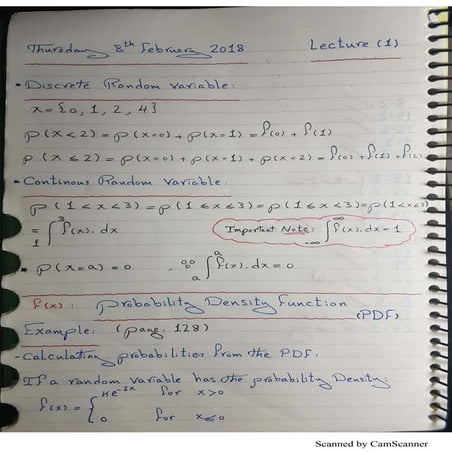 Thursday 8th February 2018 Lecture (1)
• Discrete Random variable:
x = {0, 1, 2, 4}
P(x<2) = P(x=0) + P(x=1) = f(0) + f(1)
P(x≤2) = P(x=0) + P(x=1) + P(x=2) = f(0) + f(1) + f(2)
• Continous Random variable:
P(1<x<3) = P(1≤x≤3) = P(1≤x<3) = P(1<x≤3)
= ∫₁³ f(x). dx Important Note: ∫₋∞^∞ f(x). dx = 1
* P(x=a) = 0 , ∵ ∫ₐᵃ f(x). dx = 0
f(x): probability Density Function
(PDF)
Example: (pang: 128)
- Calculating probabilities from the PDF:
If a random variable has the probability Density:
f(x) = { Ke^-2x for x>0
0 for x≤0
Scanned by CamScanner